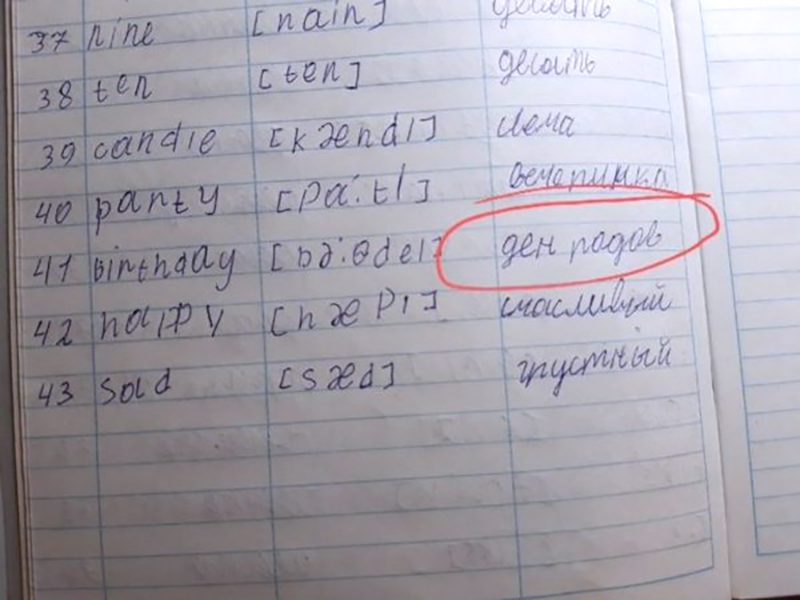 37 nine [nain] девять
38 ten [ten] десать
39 candle [kændl] свеча
40 party [pa:tI] вечеринка
41 birthday [bз:θdeI] ден радов
42 happy [hæPI] счасливый
43 sad [sæd] грустный